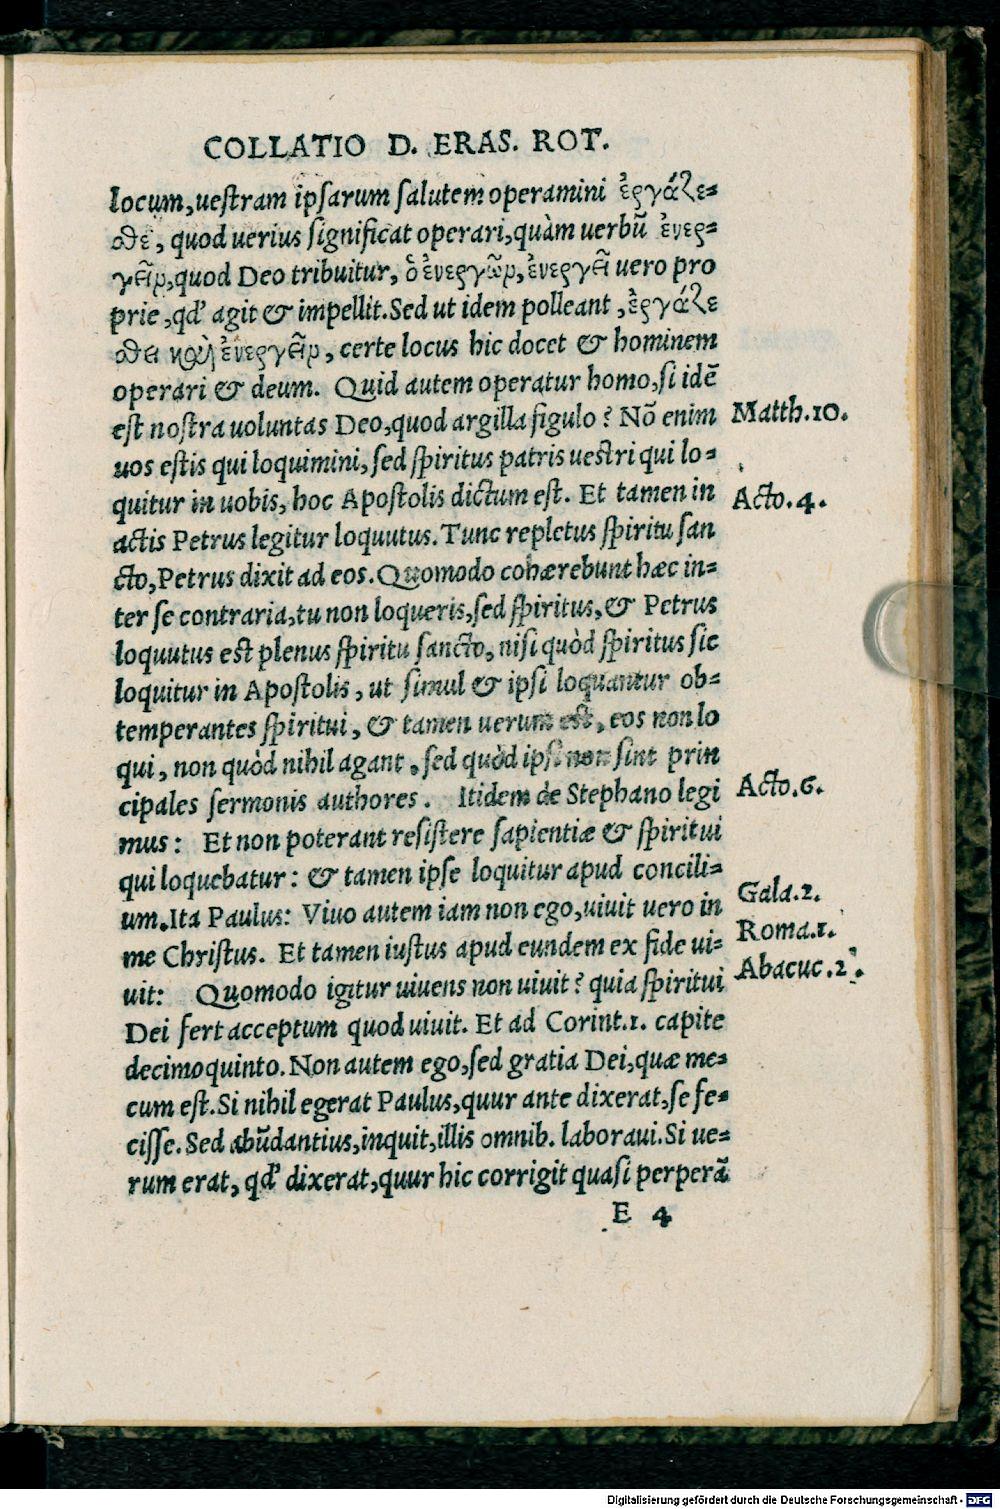 COLLATIO D. ERAS. ROT.
locum, uestram ipsarum salutem operamini ἐργάζε-
σθε, quod uerius significat operari, quàm uerbũ ἐνερ-
γεῖν, quod Deo tribuitur, ὁ ἐνεργῶν, ἐνεργεῖ uero pro
prie, qđ agit & impellit. Sed ut idem polleant, ἐργάζε
σθαι καὶ ἐνεργεῖν, certe locus hic docet & hominem
operari & deum. Quid autem operatur homo, si idē
est nostra uoluntas Deo, quod argilla figulo? Nō enim
Matth.10.
uos estis qui loquimini, sed spiritus patris uestri qui lo-
quitur in uobis, hoc Apostolis dictum est. Et tamen in
Acto.4.
actis Petrus legitur loquutus. Tunc repletus spiritu san
cto, Petrus dixit ad eos. Quomodo cohærebunt hæc in-
ter se contraria, tu non loqueris, sed spiritus, & Petrus
loquutus est plenus spiritu sancto, nisi quòd spiritus sic
loquitur in Apostolis, ut simul & ipsi loquantur ob-
temperantes spiritui, & tamen uerum est, eos non lo
qui, non quòd nihil agant, sed quòd ipsi non sint prin
cipales sermonis authores. Itidem de Stephano legi
Acto.6.
mus: Et non poterant resistere sapientiæ & spiritui
qui loquebatur: & tamen ipse loquitur apud concili-
um. Ita Paulus: Viuo autem iam non ego, uiuit uero in
Gala.2.
me Christus. Et tamen iustus apud eundem ex fide ui-
Roma.1.
uit: Quomodo igitur uiuens non uiuit? quia spiritui
Abacuc.2.
Dei fert acceptum quod uiuit. Et ad Corint.1. capite
decimoquinto. Non autem ego, sed gratia Dei, quæ me-
cum est. Si nihil egerat Paulus, quur ante dixerat, se fe-
cisse. Sed abūdantius, inquit, illis omnib. laboraui. Si ue-
rum erat, qđ dixerat, quur hic corrigit quasi perperā
E 4
Digitalisierung gefördert durch die Deutsche Forschungsgemeinschaft - DFG